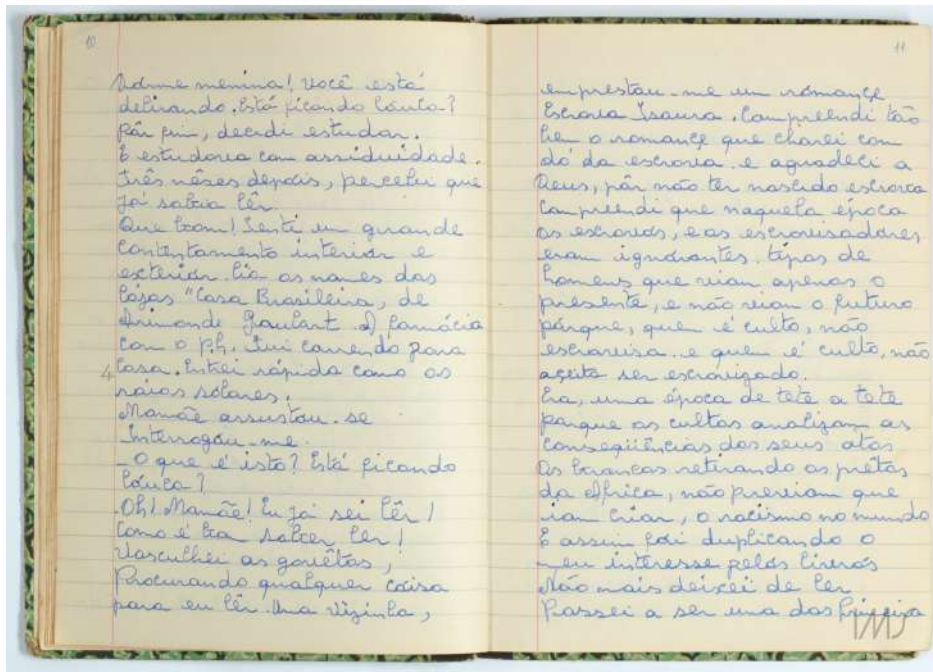 10
Dórme menina! Você está
delirando. Está ficando lóuca?
Pór fim, decidi estudar.
E estudava com assiduidade.
Três mêses depois, percebi que
já sabia lêr
Que bom! Senti um grande
contentamento interiór e
exteriór. Lia os nomes das
lójas "Casa Brasileira, de
Armond Goulart. A farmácia
com o ph. Fui correndo para
4 Casa. Entrei rápida como os
ráios sólares.
Mamãe assustou-se
Interrogou-me.
_ O que é isto? Está ficando
lóuca?
-Oh! Mamãe! Eu já sei lêr!
Como é bom saber ler!
Vasculhei as gavêtas,
Procurando qualquer cóisa
para eu lêr. Uma vizinha,
11
emprestou-me um romançe
Escrava Isaura. Compreendi tão
bem o romançe que chorei com
dó da escrava. e agradeci a
Deus, pór não ter nascido escrava
Compreendi que naquela época
os escravos, e os escravisadores
eram ignorantes. tipos de
homens que viam apenas o
presente, e não viam o futuro
pórque, quem é culto, não
escravisa. e quem é culto, não
açeita ser escravizado.
Era, uma época de tete a tete
porque os cultos analizam as
conseqüências dos seus atos
Os brancos retirando os prêtos
da Africa, não previam que
iam criar, o racismo no mundo
E assim fôi duplicando o
meu interesse pelos livros
Não mais deixei de ler
Passei a ser uma das primeira
IMS